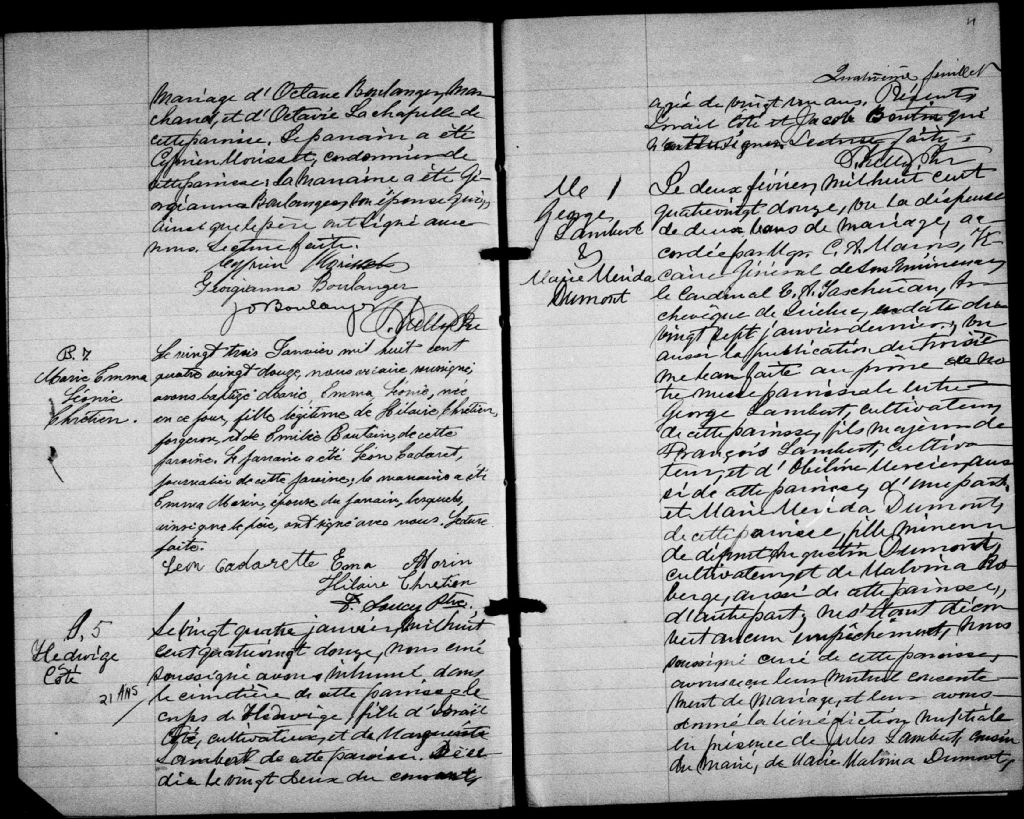 mariage d'Octave Boulanger, Mar
chand, et d'Octavie Lachapelle de
cette paroisse. Le parrain a été
Cyprien Morisset, cordonnier de
cette paroisse; la marraine a été Gé
orgianna Boulanger, son épouse qui,
ainsi que le père ont signé avec
nous. Lecture faite.
Cyprien Morissette
Georgianna Boulanger
Jos Boulanger J. Kelly Ptre
B. 7
Marie Emma
Léonie
Chrétien.
Le vingt trois Janvier mil huit cent
quatre vingt douze, nous vicaire soussigné,
avons baptisé Marie, Emma, Léonie, née
en ce jour, fille légitime de Hilaire Chrétien,
forgeron, et de Emilie Boutain, de cette
paroisse. Le parrain a été Léon Cadaret,
journalier de cette paroisse; la marraine a été
Emma Morin, épouse du parrain, lesquels,
ainsi que le père, ont signé avec nous. Lecture
faite.
Léon Cadarette Ema Morin
Hilaire Chretien
Ptre.
S. 5
Hedwige
Côté
21 ANS
Le vingt quatre janvier, mil huit
cent quatrevingt douze, nous curé
soussigné avons inhumé dans
le cimetière de cette paroisse, le
corps de Hedwige, fille d'Israïl
Côté, cultivateur, et de Marguerite
Lambert de cette paroisse. Décé
dée le vingt deux du courant,
Quatrième feuillet
agée de vingt un ans. Présents
Israïl Côté et Jacob Boutin qui
signer. Lecture faite.
J. Kelly, Ptre
M 1
George
Lambert
&
Marie Merida
Dumont
Le deux février, mil huit cent
quatrevingt douze, vu la dispense
de deux bans de mariage, ac
cordée par Mgr. C. A. Marois, Vi
caire Général de Son Eminence
le Cardinal E. A. Taschereau, Ar
chevêque de Québec, en date du
vingt sept janvier dernier; vu
aussi la publication du troisiè
me ban faite au prône de no
tre messe paroissiale entre
George Lambert, cultivateur,
de cette paroisse, fils majeur de
François Lambert, cultiva
teur, et d'Obéline Mercier, aus
si de cette paroisse, d'une part;
et Marie Merida Dumont,
de cette paroisse, fille mineure
de défunt Augustin Dumont,
cultivateur, et de Malvina Ro
berge, aussi de cette paroisse,
d'autre part; ne s'étant décou
vert aucun empêchement, nous
soussigné curé de cette paroisse,
avons reçu leur mutuel consente
ment de mariage, et leur avons
donné la bénédiction nuptiale
en présence de Jules Lambert, cousin
du marié, de Marie Malvina Dumont,